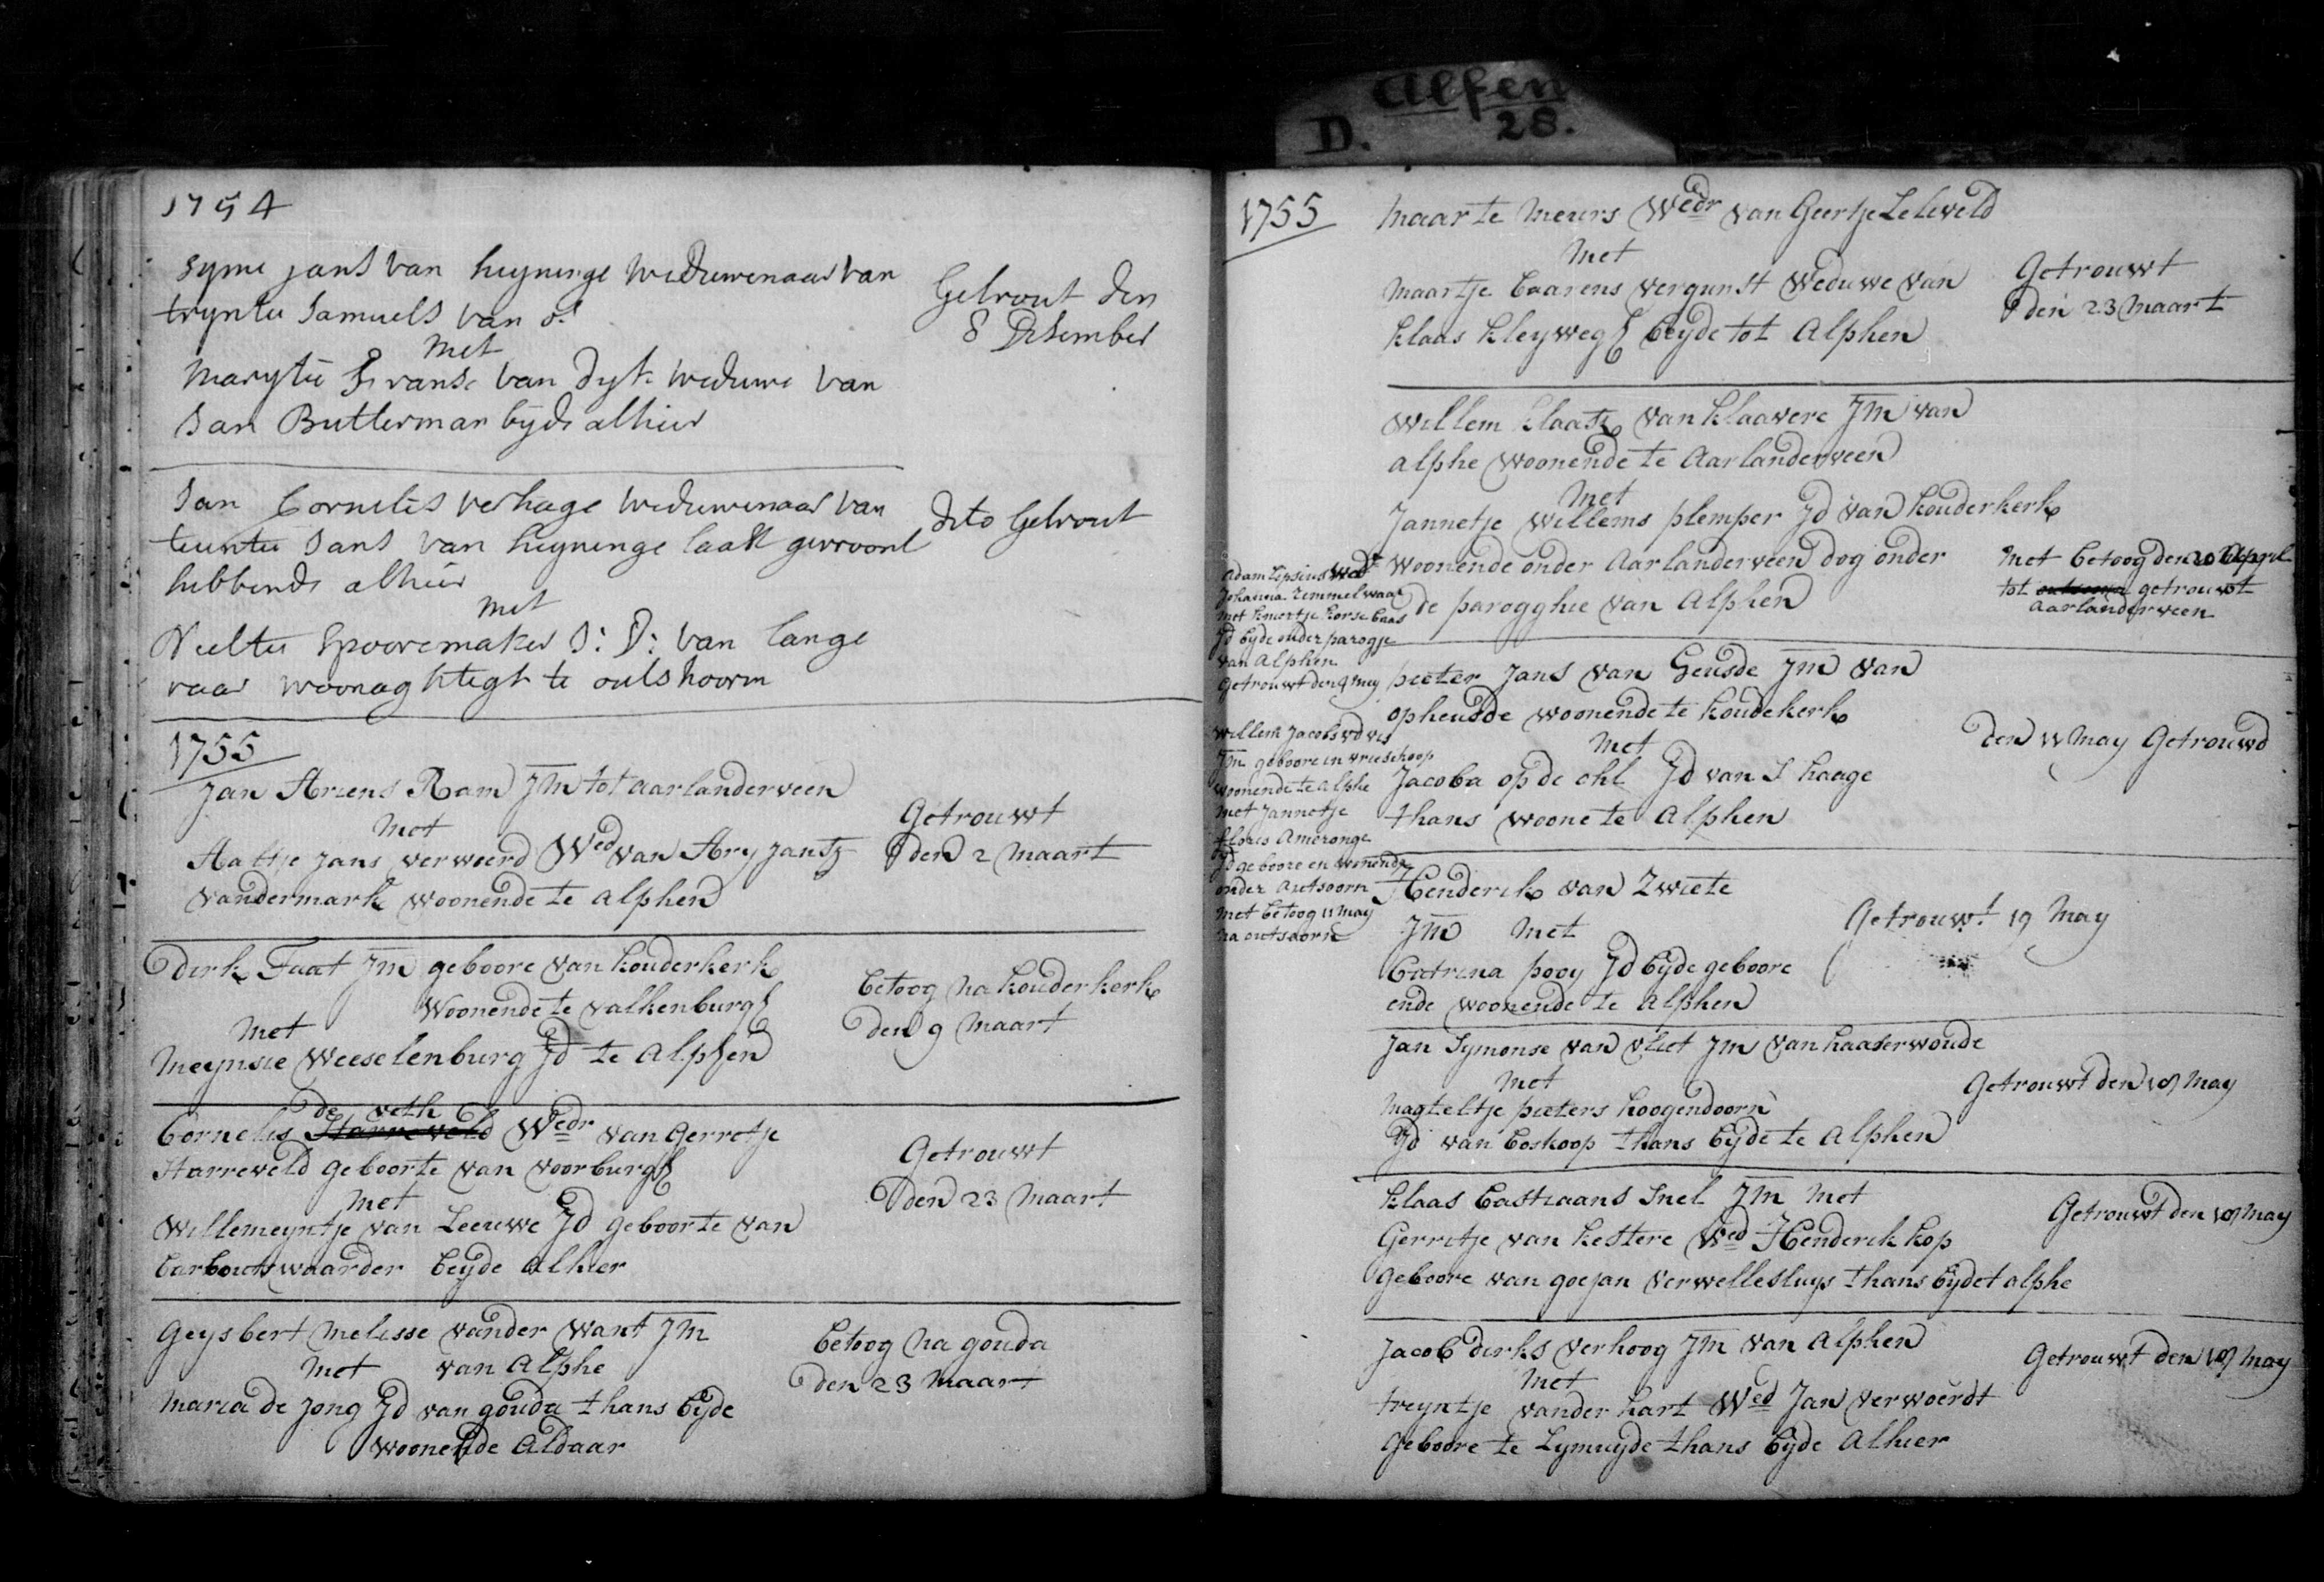 Alfen
D. 28.
1754
Syme jans van heyninge weduwenaar van
tryntie Samuels van os
Met
Marytie Franse van Dyk weduwe van
Jan Butterman byde alhier
Getrout den
8 Desember
Jan Cornelis verhage weduwenaar van
teuntie Jans van heyninge laast gewoont
hebbende alhier
met
Neeltie Spooremaker J: D: van lange
raar woonaghtigh te outshoorn
dito Getrout
1755
Jan Ariens Ram JM tot aarlanderveen
Met
Aaltje Jans verwoerd Wed van Ary Jantz
vandermark woonende te alphen
Getrouwt
den 2 Maart
Dirk Faat JM geboore van kouderkerk
Woonende te valkenburgh
Met
Meynsie Weeselenburg Jd te Alphen
betoog na kouderkerk
den 9 Maart
de veth
Cornelis Harreveld Wedr van Gerretje
Harreveld geboorte van voorburgh
Met
Willemeyntje van Leeuwe Jd geboorte van
barboutswaarder beyde alhier
Getrouwt
den 23 Maart
Geysbert Melisse vander want JM
Met van Alphe
Maria de Jong Jd van gouda thans byde
woonende Aldaar
betoog na gouda
den 23 Maart
1755
Maarte Meurs Wedr van Geertje Leliveld
Met
Maartje baarens vergunst Weduwe van
klaas kleyweg beyde tot Alphen
Getrouwt
den 23 Maart
Willem klaasz van klaavere JM van
alphe woonende te Aarlanderveen
Met
Jannetje Willems plemper Jd van kouderkerk
woonende onder Aarlanderveen dog onder
de parogghie van Alphen
Met betoog den 20 April
tot getrouwt
aarlanderveen
Adam Lepsius Wedr
Johanna Zemmelwaar
met kniertje korse baas
Jd byde onder parogje
van Alphen
Getrouwt den 4 Mey
Willem Jacobs vd vis
JM geboore in vrieschoop
woonende te alphe
met Jannetje
floris Ameronge
Jd geboore en wonende
onder outsoorn
met betoog 11 May
na outsoorn
pieter Jans van Heusde JM van
opheusde woonende te koudekerk
Met
Jacoba op de ohl Jd van S haage
thans woone te Alphen
den 11 May Getrouwd
Henderik van Zwiete
JM Met
Catrina pooy Jd byde geboore
ende woonende te Alphen
Getrouwt 19 May
Jan Symonse van vliet JM van haaserwoude
Met
Magteltje pieters hoogendoorn
Jd van boskoop thans byde te Alphen
Getrouwt den 19 May
klaas bastiaans Snel JM Met
Gerritje van kestere Wed Henderik kop
geboore van goejan verwellesluys thans byde t alphe
Getrouwt den 19 May
Jacob dirks verhoog JM van Alphen
Met
treyntje vander hart Wed Jan verwoerdt
geboore te Lymuyde thans byde Alhier
Getrouwt den 19 May